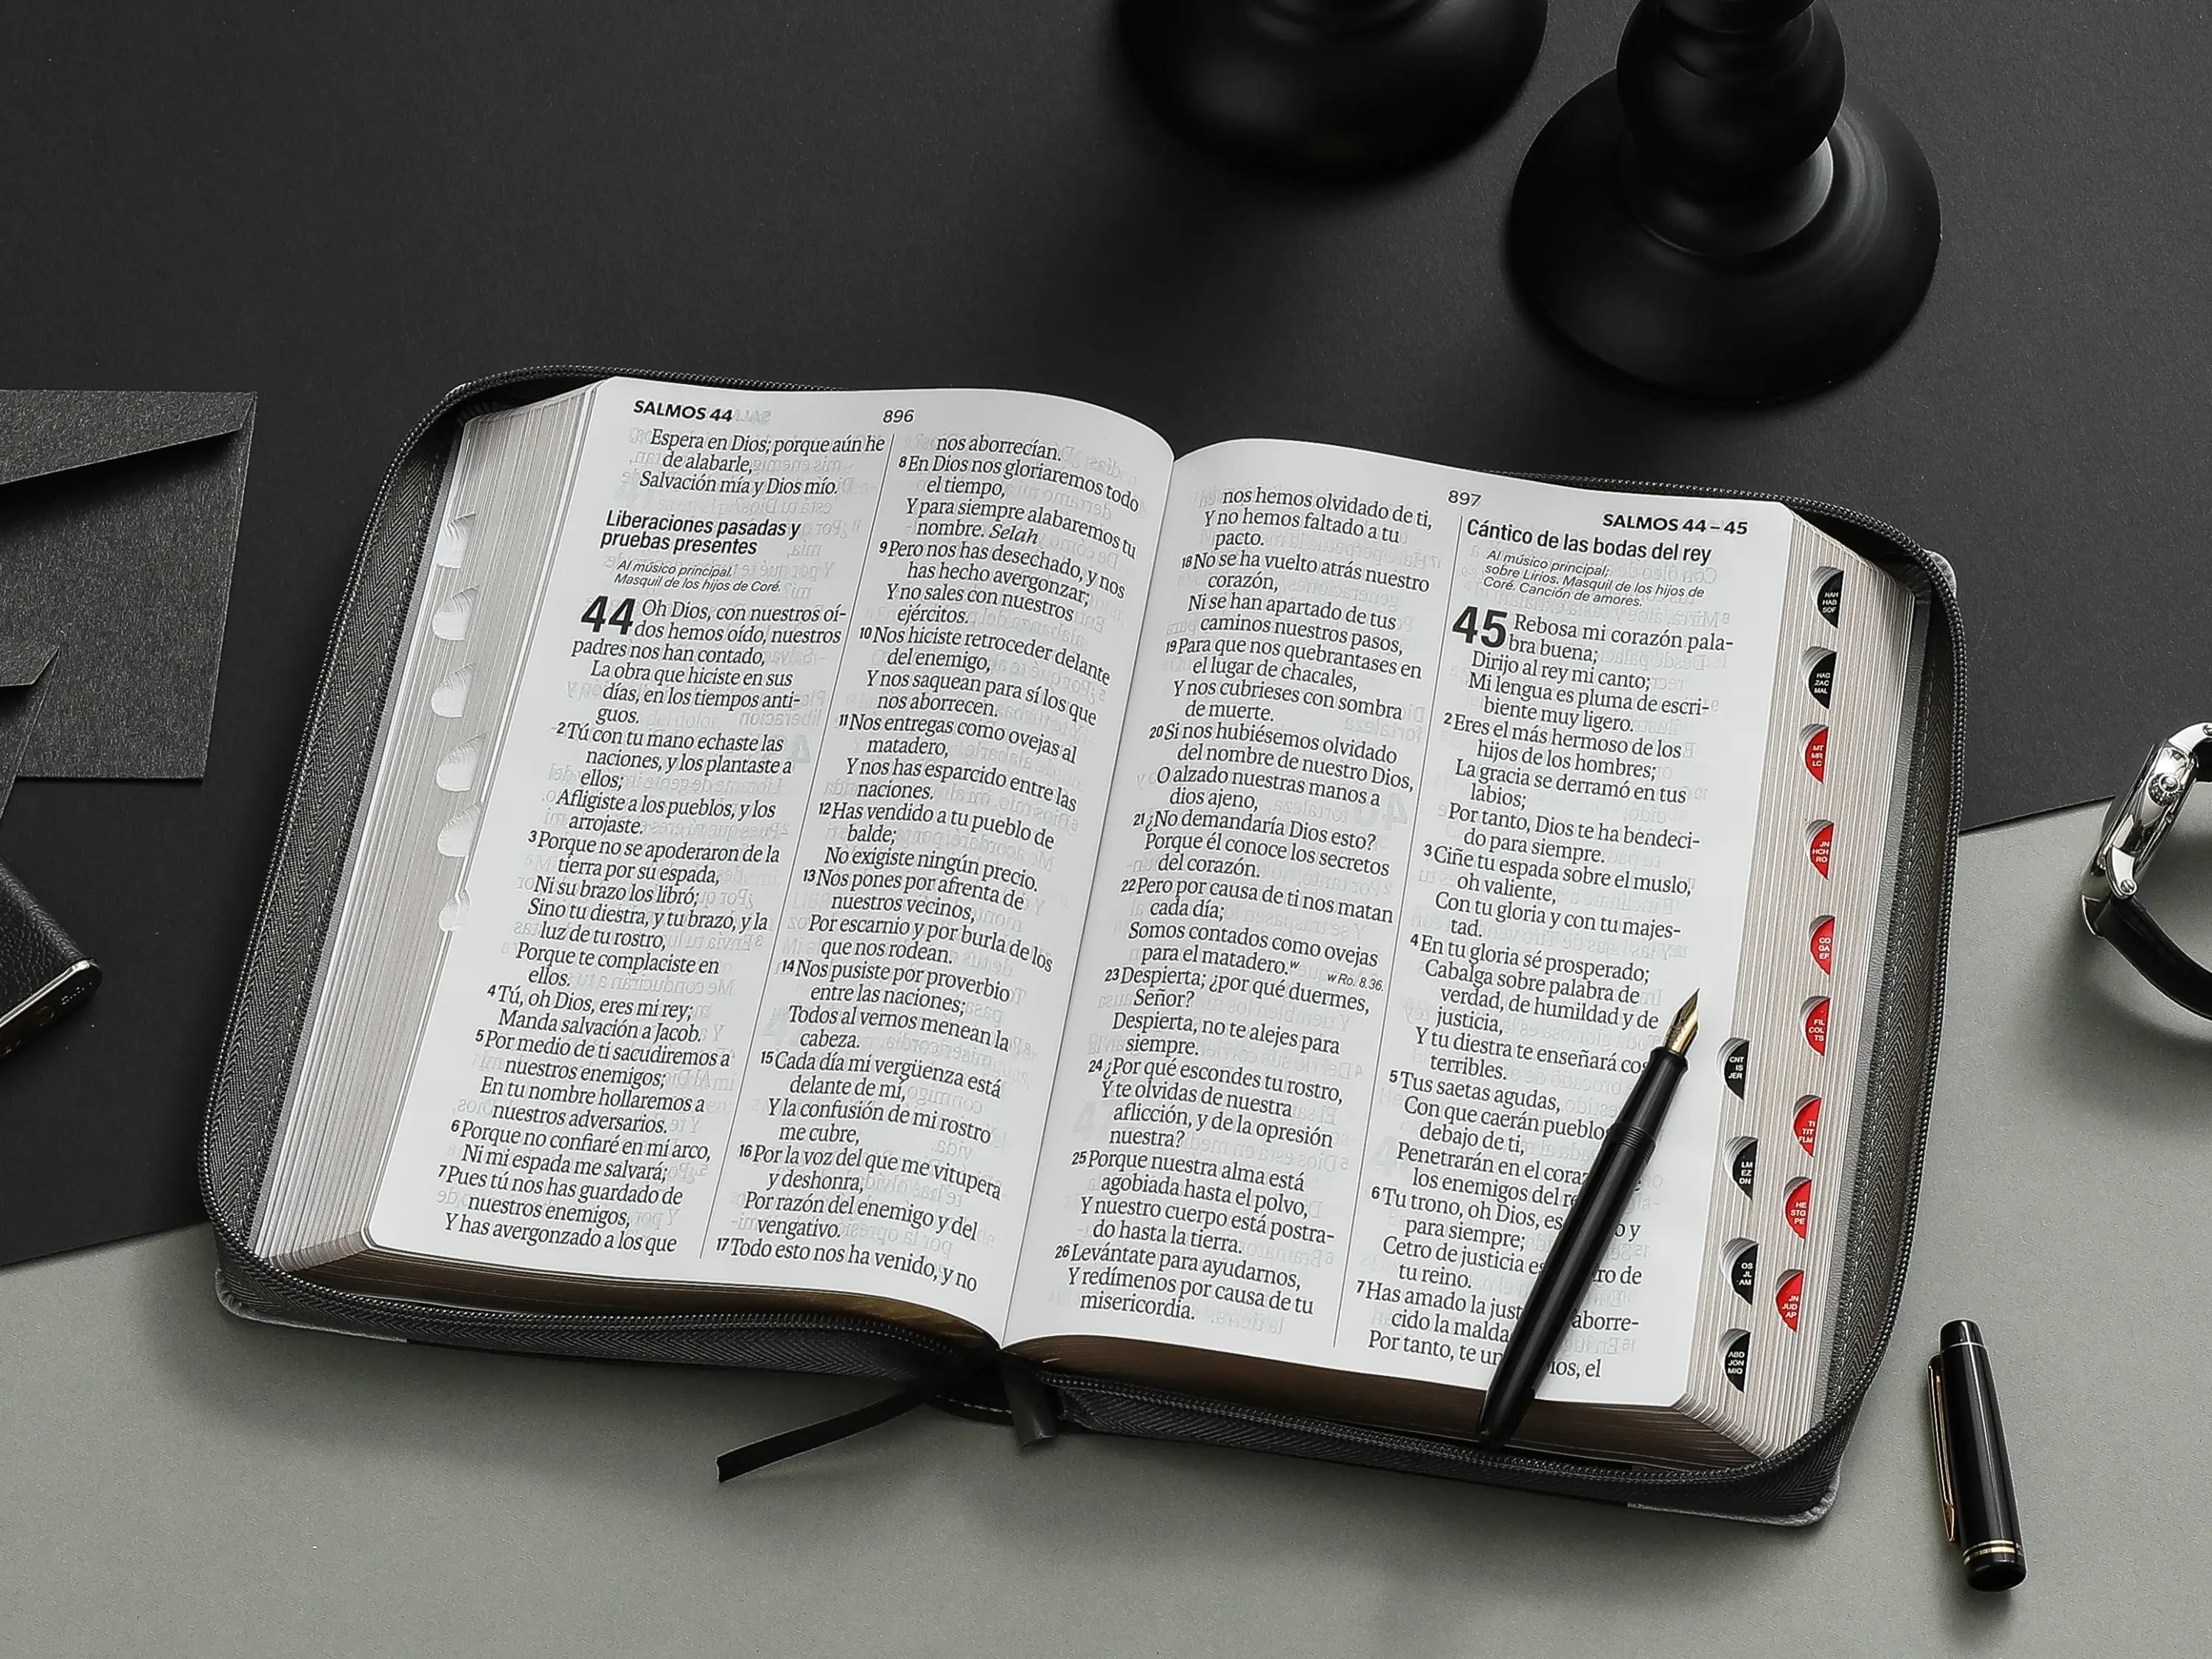 SALMOS 44
896
Espera en Dios; porque aún he
de alabarle,
Salvación mía y Dios mío.
Liberaciones pasadas y
pruebas presentes
Al músico principal.
Masquil de los hijos de Coré.
44 Oh Dios, con nuestros oí-
dos hemos oído, nuestros
padres nos han contado,
La obra que hiciste en sus
días, en los tiempos anti-
guos.
2 Tú con tu mano echaste las
naciones, y los plantaste a
ellos;
Afligiste a los pueblos, y los
arrojaste.
3 Porque no se apoderaron de la
tierra por su espada,
Ni su brazo los libró;
Sino tu diestra, y tu brazo, y la
luz de tu rostro,
Porque te complaciste en
ellos.
4 Tú, oh Dios, eres mi rey;
Manda salvación a Jacob.
5 Por medio de ti sacudiremos a
nuestros enemigos;
En tu nombre hollaremos a
nuestros adversarios.
6 Porque no confiaré en mi arco,
Ni mi espada me salvará;
7 Pues tú nos has guardado de
nuestros enemigos,
Y has avergonzado a los que
nos aborrecían.
8 En Dios nos gloriaremos todo
el tiempo,
Y para siempre alabaremos tu
nombre. Selah
9 Pero nos has desechado, y nos
has hecho avergonzar;
Y no sales con nuestros
ejércitos.
10 Nos hiciste retroceder delante
del enemigo,
Y nos saquean para sí los que
nos aborrecen.
11 Nos entregas como ovejas al
matadero,
Y nos has esparcido entre las
naciones.
12 Has vendido a tu pueblo de
balde;
No exigiste ningún precio.
13 Nos pones por afrenta de
nuestros vecinos,
Por escarnio y por burla de los
que nos rodean.
14 Nos pusiste por proverbio
entre las naciones;
Todos al vernos menean la
cabeza.
15 Cada día mi vergüenza está
delante de mí,
Y la confusión de mi rostro
me cubre,
16 Por la voz del que me vitupera
y deshonra,
Por razón del enemigo y del
vengativo.
17 Todo esto nos ha venido, y no
897
SALMOS 44–45
nos hemos olvidado de ti,
Y no hemos faltado a tu
pacto.
18 No se ha vuelto atrás nuestro
corazón,
Ni se han apartado de tus
caminos nuestros pasos,
19 Para que nos quebrantases en
el lugar de chacales,
Y nos cubrieses con sombra
de muerte.
20 Si nos hubiésemos olvidado
del nombre de nuestro Dios,
O alzado nuestras manos a
dios ajeno,
21 ¿No demandaría Dios esto?
Porque él conoce los secretos
del corazón.
22 Pero por causa de ti nos matan
cada día;
Somos contados como ovejas
para el matadero.w
w Ro. 8.36.
23 Despierta; ¿por qué duermes,
Señor?
Despierta, no te alejes para
siempre.
24 ¿Por qué escondes tu rostro,
Y te olvidas de nuestra
aflicción, y de la opresión
nuestra?
25 Porque nuestra alma está
agobiada hasta el polvo,
Y nuestro cuerpo está postra-
do hasta la tierra.
26 Levántate para ayudarnos,
Y redímenos por causa de tu
misericordia.
Cántico de las bodas del rey
Al músico principal;
sobre Lirios. Masquil de los hijos de
Coré. Canción de amores.
45 Rebosa mi corazón pala-
bra buena;
Dirijo al rey mi canto;
Mi lengua es pluma de escri-
biente muy ligero.
2 Eres el más hermoso de los
hijos de los hombres;
La gracia se derramó en tus
labios;
Por tanto, Dios te ha bendeci-
do para siempre.
3 Ciñe tu espada sobre el muslo,
oh valiente,
Con tu gloria y con tu majes-
tad.
4 En tu gloria sé prosperado;
Cabalga sobre palabra de
verdad, de humildad y de
justicia,
Y tu diestra te enseñará cos
terribles.
5 Tus saetas agudas,
Con que caerán pueblo
debajo de ti,
Penetrarán en el coraz
los enemigos del re
6 Tu trono, oh Dios, es o y
para siempre;
Cetro de justicia e ro de
tu reino.
7 Has amado la just aborre-
cido la malda
Por tanto, te un ios, el
HAH
HAB
SOF
HAG
ZAC
MAL
MT
MR
LC
JN
HCH
RO
CO
GA
EF
FIL
COL
TS
CNT
IS
JER
TI
TIT
FLM
LM
EZ
DN
HE
STG
PE
OS
JL
AM
JN
JUD
AP
ABD
JON
MIQ